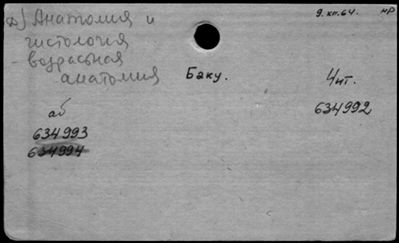 д) Анатомия и
9.XII.64. нр
гистология
- возрастная
анатомия
Баку.
Чит.
аб
634992
634993
634994